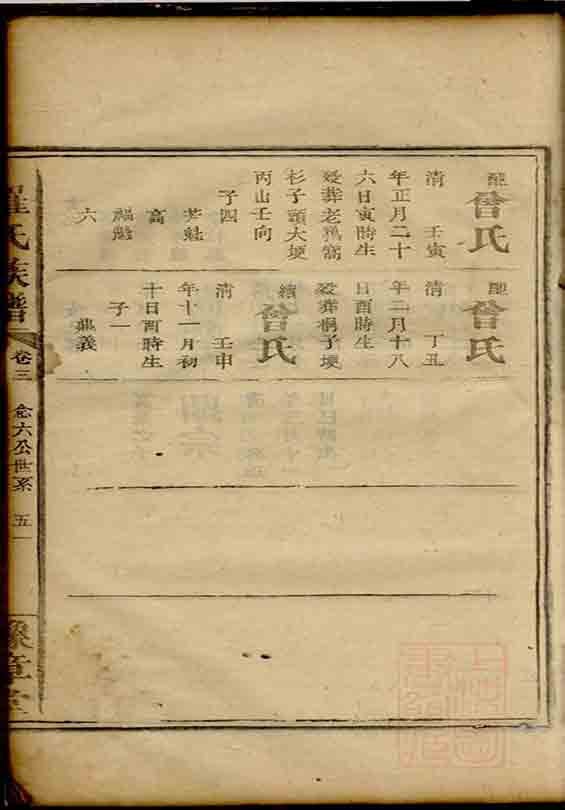 配曾氏
清　壬寅
年正月二十
六日寅時生
歿葬老鴉窩
杉子頭大埂
丙山壬向
子四
芳魁
高
福魁
六
配曾氏
清　丁丑
年二月十八
日酉時生
歿葬桐子埂
續曾氏
清　壬申
年十一月初
十日酉時生
子一
鼎義
羅氏族譜
卷三
念六公世系　五
豫章堂